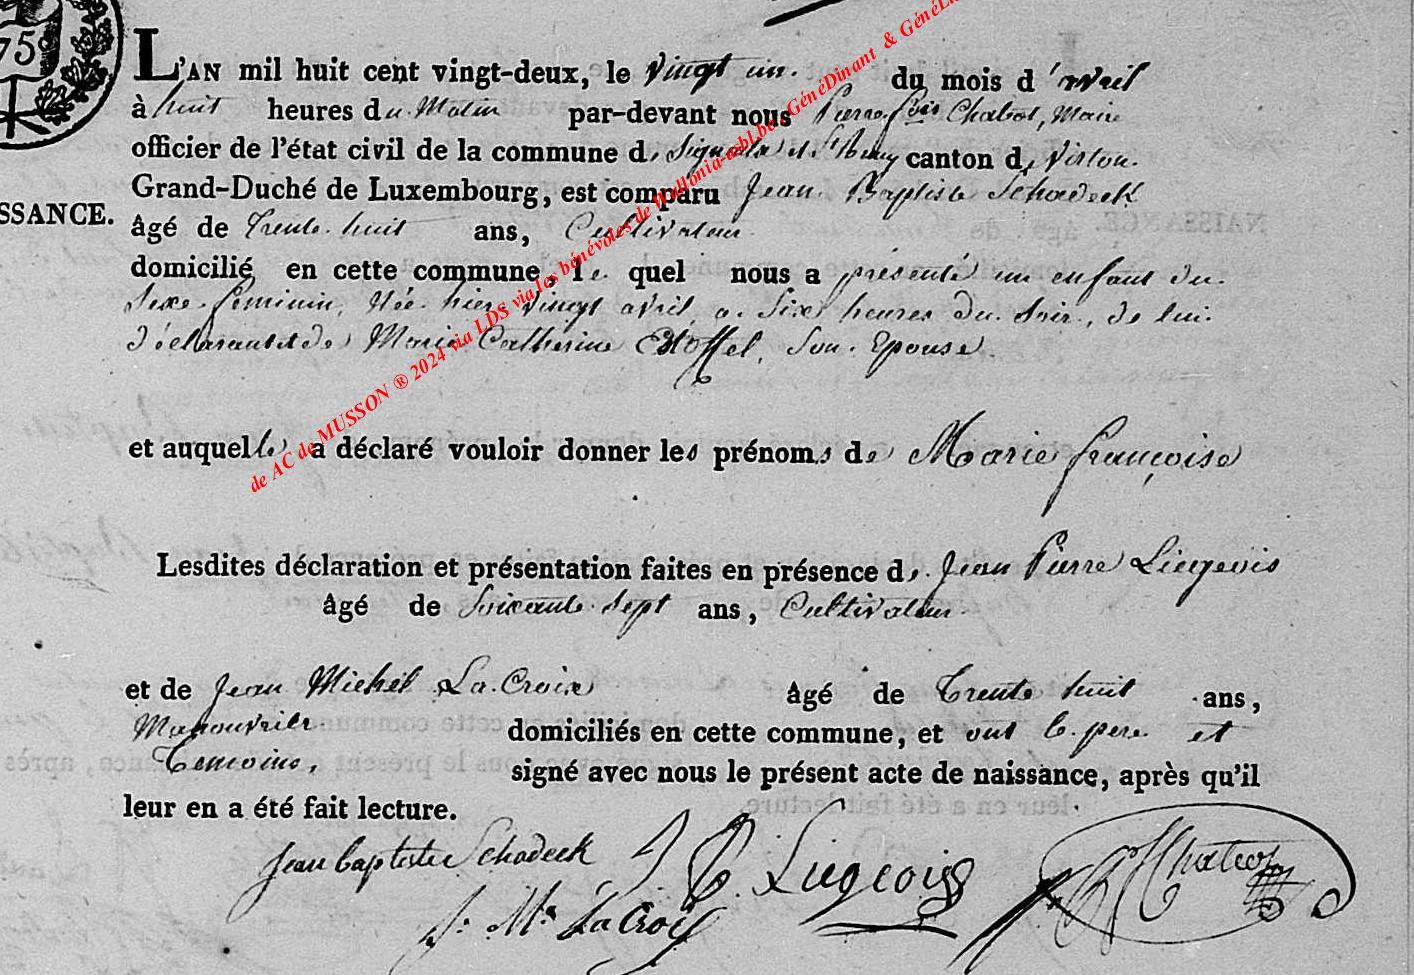 75
L'AN mil huit cent vingt-deux, le vingt un. du mois d'avril
à huit heures du Matin par-devant nous Pierre Fçois Chatrot, Maire
officier de l'état civil de la commune de Signeulx et St Remy canton de Virton.
Grand-Duché de Luxembourg, est comparu Jean Baptiste Schadeck
SSANCE.
âgé de Trente huit ans, Cultivateur
domicilié en cette commune, le quel nous a présenté un enfant du
Sexe feminin, Née hier vingt avril, a Six heures du Soir, de lui
déclarant et de Marie Catherine Son Epouse.
et auquel le a déclaré vouloir donner les prénoms de Marie françoise
Lesdites déclaration et présentation faites en présence de Jean Pierre Liegeois
âgé de Soixante Sept ans, Cultivateur
et de Jean Michel La Croix âgé de Trente huit ans,
Manouvrier domiciliés en cette commune, et ont le pere et
Temoins, signé avec nous le présent acte de naissance, après qu'il
leur en a été fait lecture.
Jean baptiste Schadeck J P. Liegeois Chatrot
J: Ml LaCroix
de AC de MUSSON ® 2024 via LDS via les bénévoles de Wallonia-asbl.be, GénéDinant & GénéLu